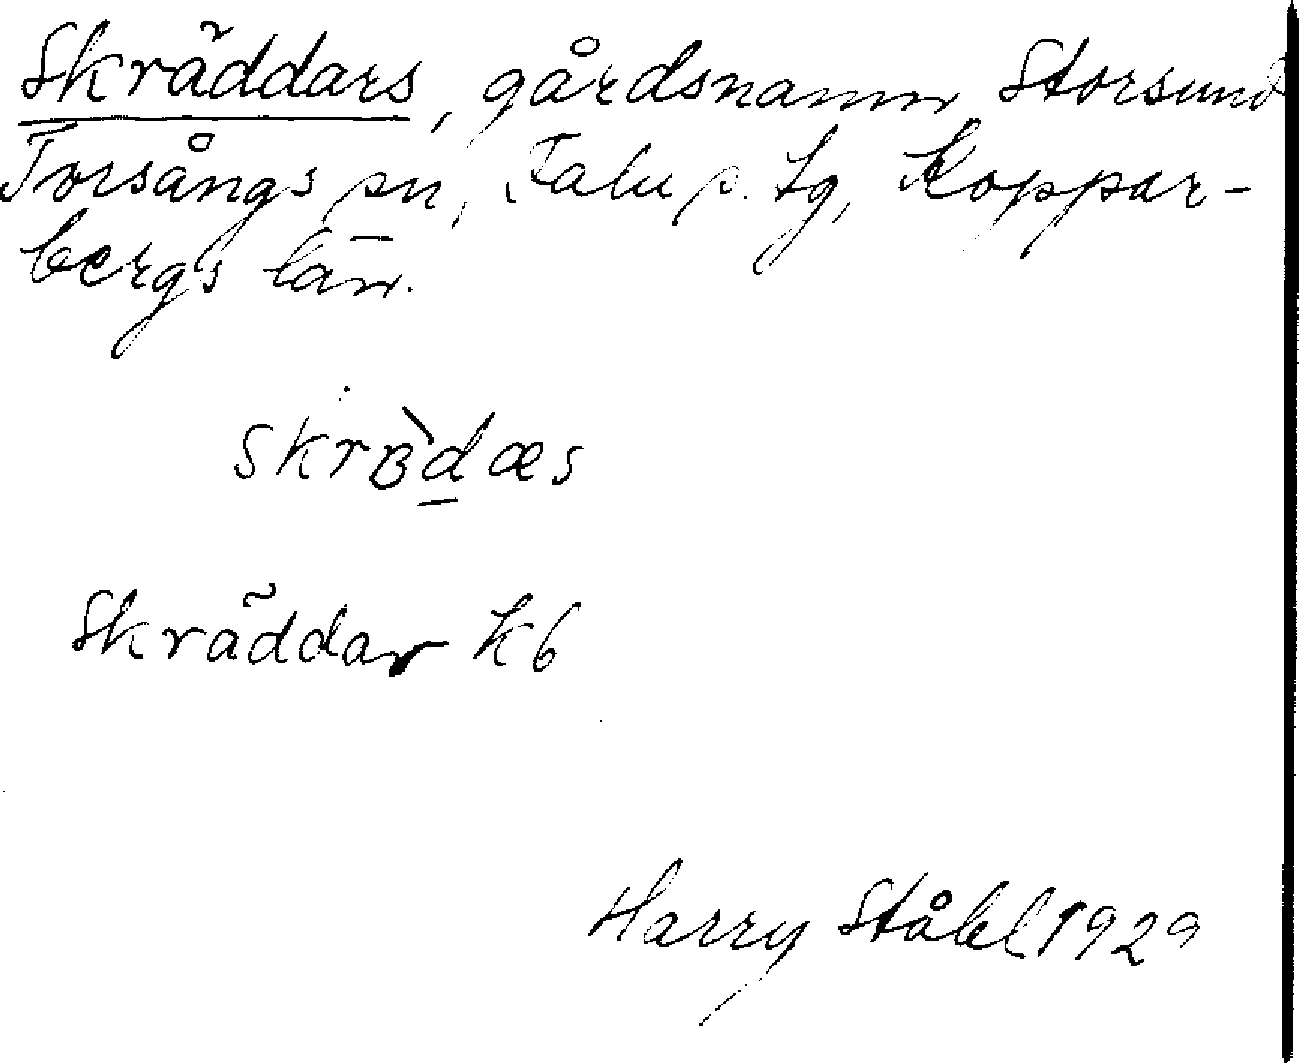 Skräddars, gårdsnamn Storsund
Torsångs sn, Falu s. lg, Koppar-
bergs län.
skrɞ̀d̲æs
Skräddar K6
Harry Ståhl 1929